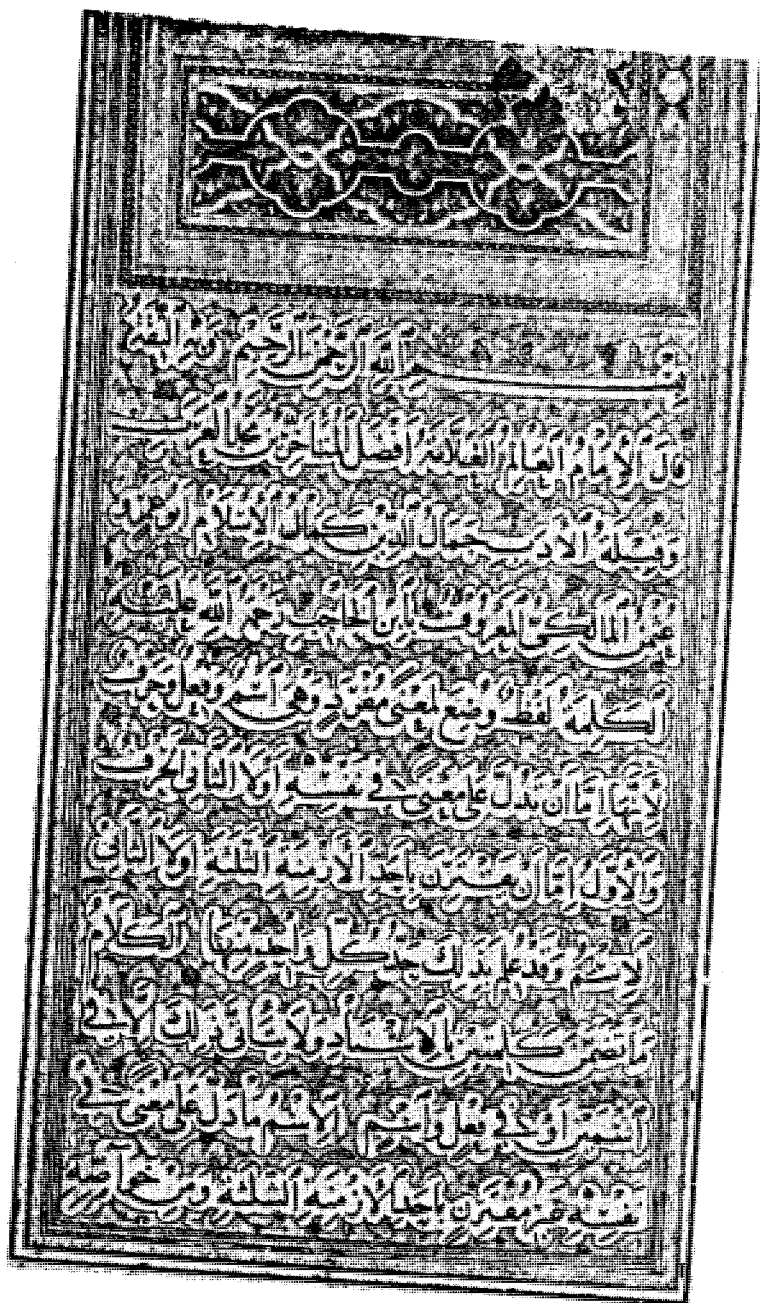 بسم الله الرحمن الرحيم
قال الامام العالم العلامة افضل المتاخرين
وقبلة الادب جمال الدين كمال الاسلام ابو عمرو
عثمن المالكي المعروف بابن الحاجب رحمة الله عليه
الكلمة لفظ وضع لمعنى مفرد وهى اسم وفعل وحرف
لانها اما ان تدل على معنى فى نفسها اولا الثانى الحرف
والاول اما ان يقترن باحد الازمنة الثلثة اولا الثانى
الاسم وقد علم بذلك حد كل واحد منها الكلام
ما تضمن كلمتين بالاسناد ولا يتاتى ذلك الا فى
اسمين او فى فعل واسم الاسم ما دل على معنى فى
نفسه غير مقترن باحد الازمنة الثلثة ومن خواصه